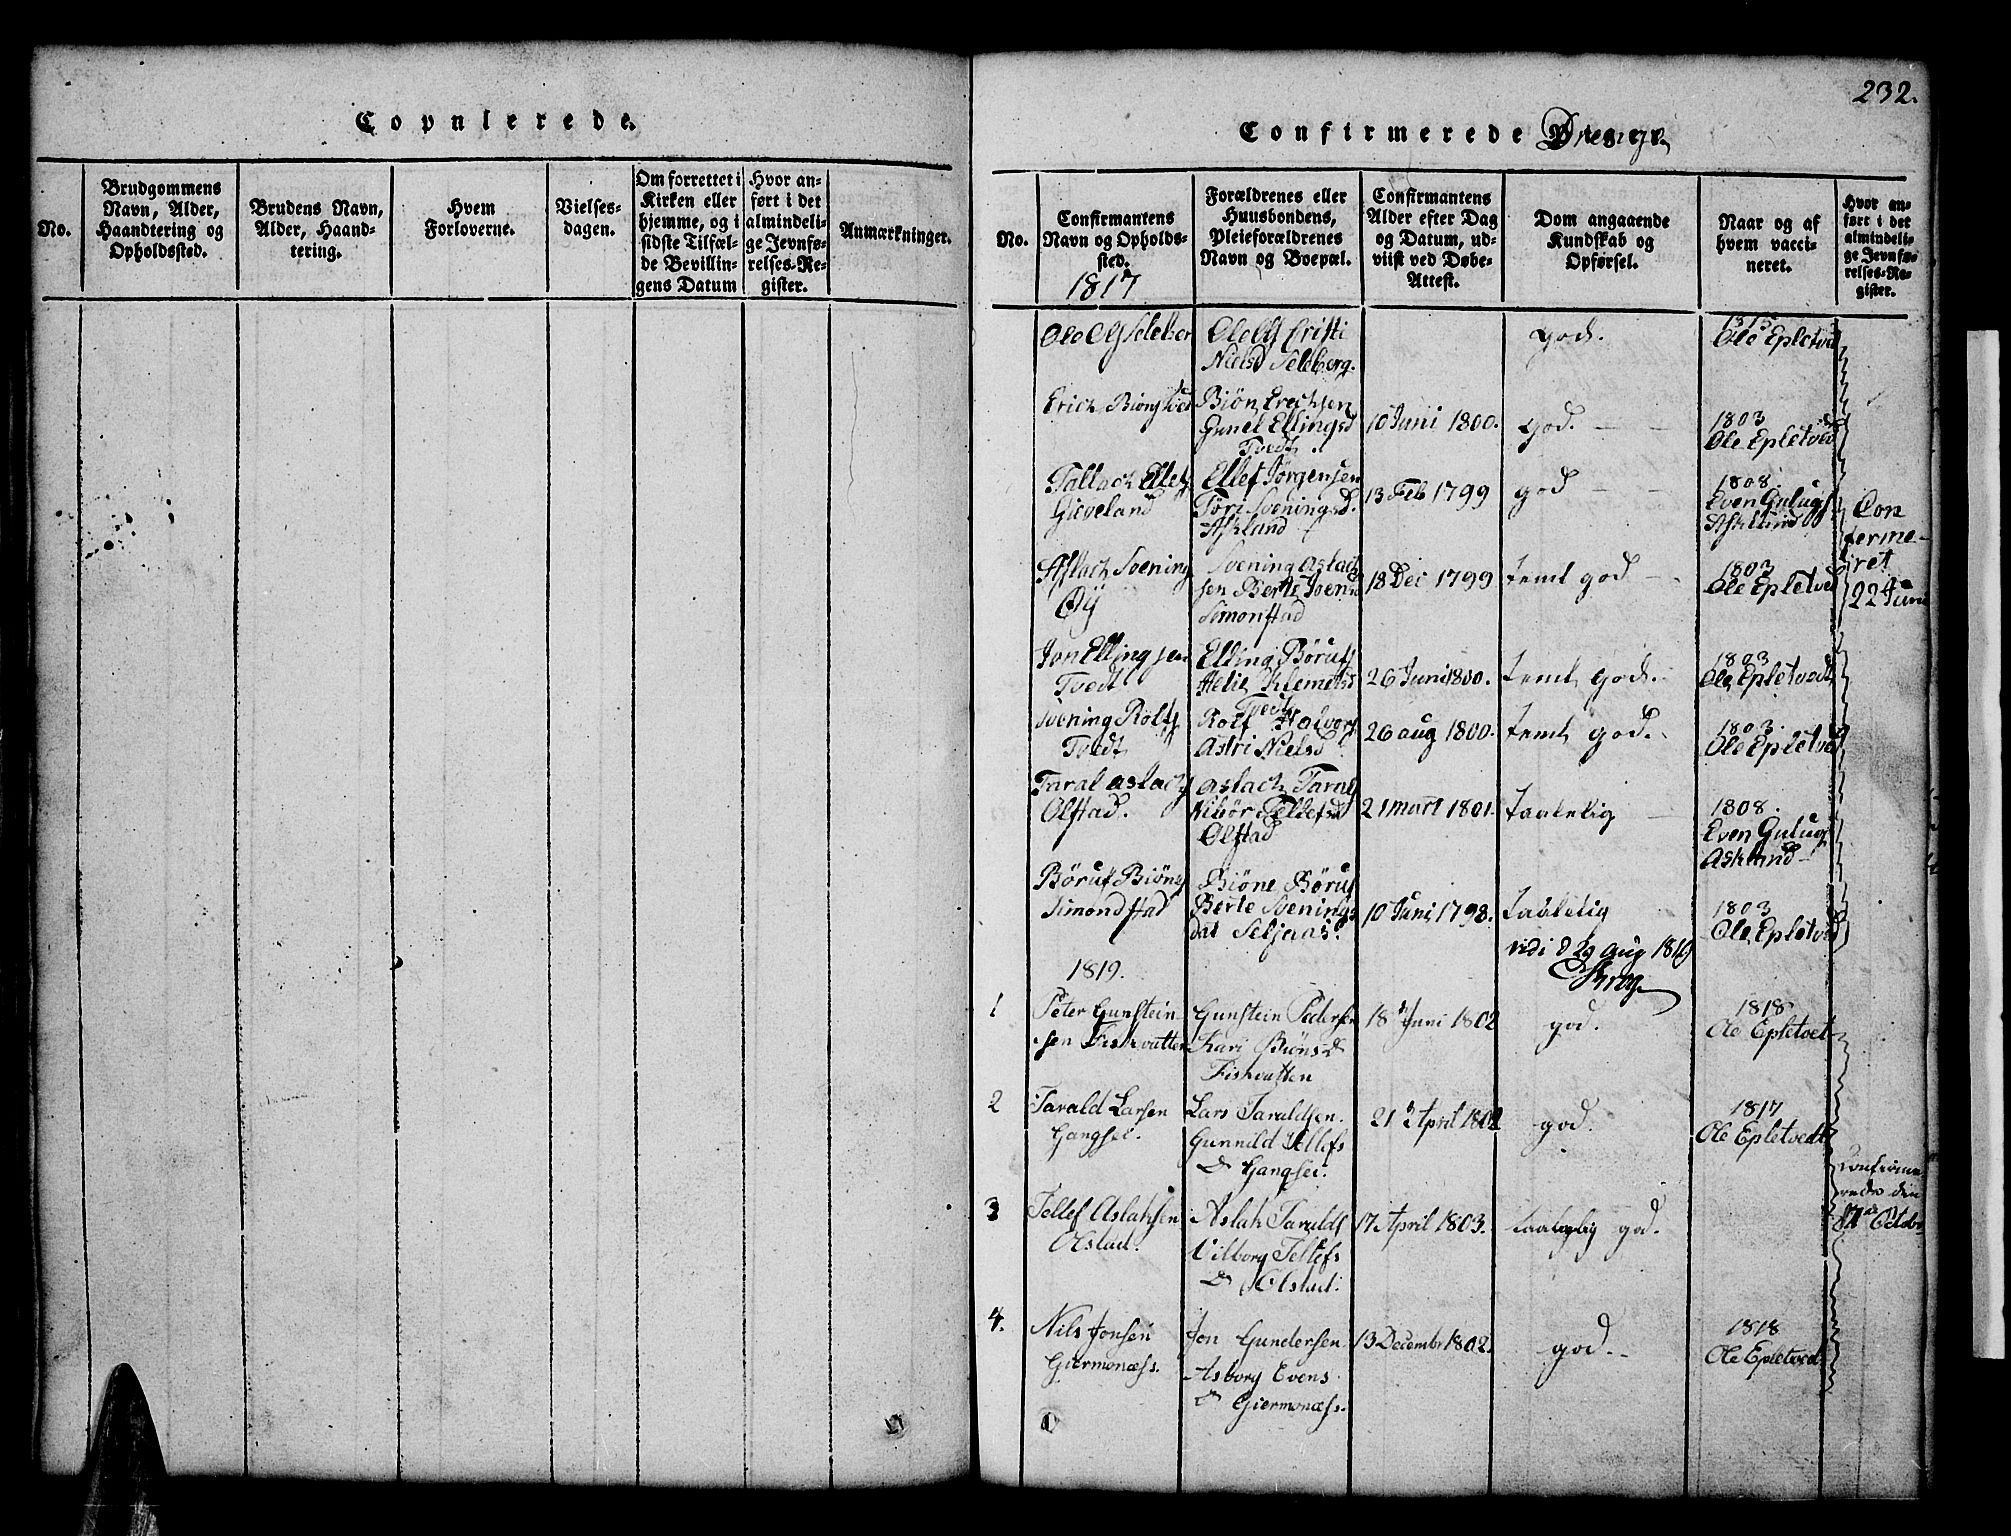 232.
Copulerede.
No.
Brudgommens
Navn, Alder,
Haandtering og
Opholdssted.
Brudens Navn,
Alder, Haand-
tering.
Hvem
Forloverne.
Vielses-
dagen.
Om forrettet i
Kirken eller
hjemme, og i
sidste Tilfæl-
de Bevillin-
gens Datum
Hvor an-
ført i det
almindeli-
ge Jevnfø-
relses-Re-
gister.
Anmærkninger.
Confirmerede Drenge
No.
Confirmantens
Navn og Opholds-
sted.
1817
Forældrenes eller
Huusbondens,
Pleieforældrenes
Navn og Boepæl.
Confirmantens
Alder efter Dag
og Datum, ud-
viist ved Døbe-
Attest.
Dom angaaende
Kundskab og
Opførsel.
Naar og af
hvem vacci-
neret.
Hvor an-
ført i det
almindeli-
ge Jevnfø-
relses-Re-
gister.
Ole
Nielsd Seleberg.
god.
Ole Epletved
Erich
Biön Erechsen
Gunel Ellingsd
Tvedt
10 Juni 1800.
god.
1803
Ole Epletved
Tallach Ellefs
Gieveland
Ellef Jorgensen
Töri Sveningsd.
Askland
13 Feb 1799
god
1808.
Even Gulugs
Askland
Aslach Svening
Öÿ
Svening Aslach
sen Berte Svens
Simonstad
18 Dec 1799
temt god
1803
Ole Epletved
Con
ferme-
ret
22 Juni
Jon Ellingsen
Tvedt
Elling Börufs
Helie Klemetsd
Tvedt
26 Juni 1800.
temt god.
1803
Ole Epletvedt
Svening Rolfs
Tvedt
Rolf Halvors
Astri Nielsd
26 aug 1800.
temt god.
1803.
Ole Epletved
Taral aslachs
Olstad.
aslach Taral
Vibör Tellefsd
Olstad
21 mart 1801.
taalelig
1808.
Even Gulugs
Askland
Böruf Biöns
Simonstad
Biöne Böruf
Berte Svenings
Dat Seljaas
10 Juni 1798.
taalelig
1803
Ole Epletved
vidi d 29 aug 1819
Krog
1819.
1
Peter Gunstein-
sen Fiskvatten
Gunstein Pedersen
Kari Biönsd
Fiskvatten
18 Juni 1802
god.
1818
Ole Epletvet
2
Tarald Larsen
Gangsei.
Lars Taraldsen.
Gunnild Tellefs
D Gangsei.
21 April 1802
god.
1817
Ole Epletvedt
Confirme
rede den
17 Octobr
3
Tellef Aslaksen
Olstad.
Aslak Taralds
Vilborg Tellefs
D Olstad.
17 April 1803.
taalelig god.
4.
Nils Jonsen
Giermonæs.
Jon Gundersen
Asborg Evens
D Giermonæs.
13 Decembr 1802.
god.
1818
Ole Epletved